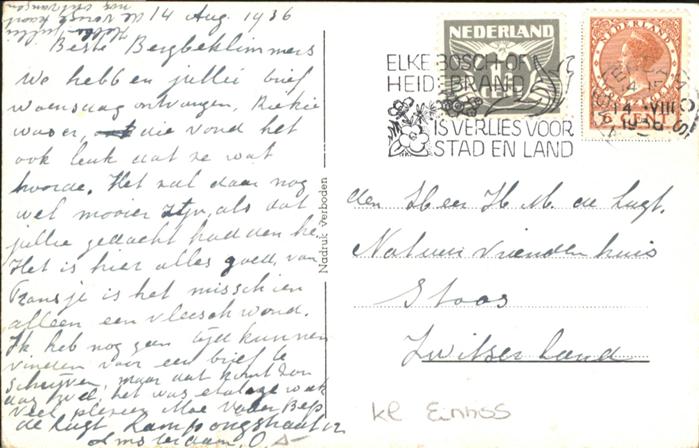 de vorige kaart
nog ontvangen
14 Aug. 1936
Beste Bergbeklimmers
We hebben jullie brief
woensdag ontvangen, Riekie
was er, die vond het
ook leuk dat ze wat
hoorde. Het zal daar nog
wel mooier zijn, als dat
jullie gedacht hadden hé.
Het is hier alles goed, van
Fransje is het misschien
alleen een vleeschwond.
Ik heb nog geen tijd kunnen
vinden voor een brief te
schrijven, maar dat komt zon
dag wel, het was etalage week
veel plezier Moe Vader Bep
de Lugt Kamponystraat 12
Amsterdam, O
Nadruk Verboden
NEDERLAND
NEDERLAND
CENT
ELKE BOSCH OF
HEIDEBRAND
IS VERLIES VOOR
STAD EN LAND
14 VIII
1936
den Heer H. M. de Lugt.
Natuurvriendenhuis
Stoos
Zwitserland
kl Einoss